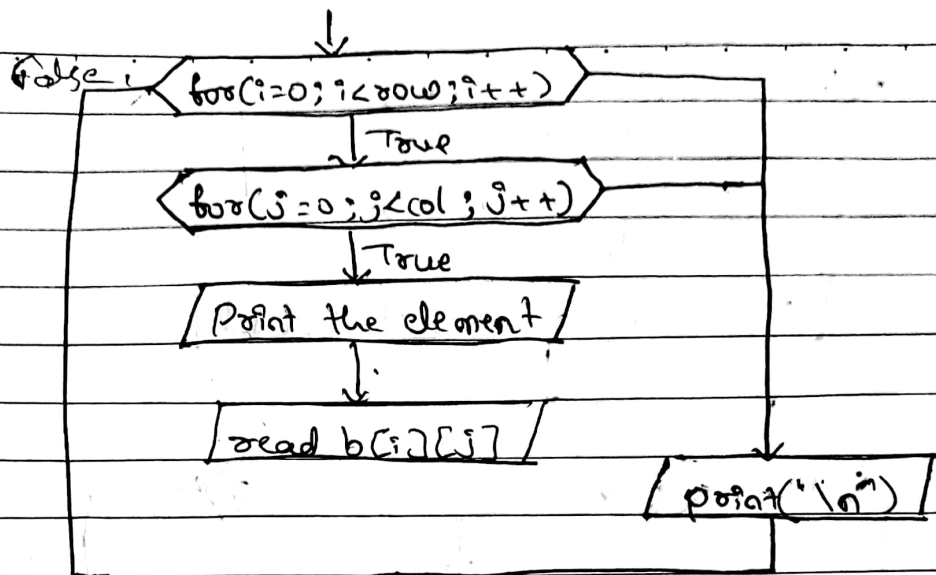 False
for(i=0; i<row; i++)
True
for(j=0; j<col; j++)
True
Print the element
read b[i][j]
print("\n")